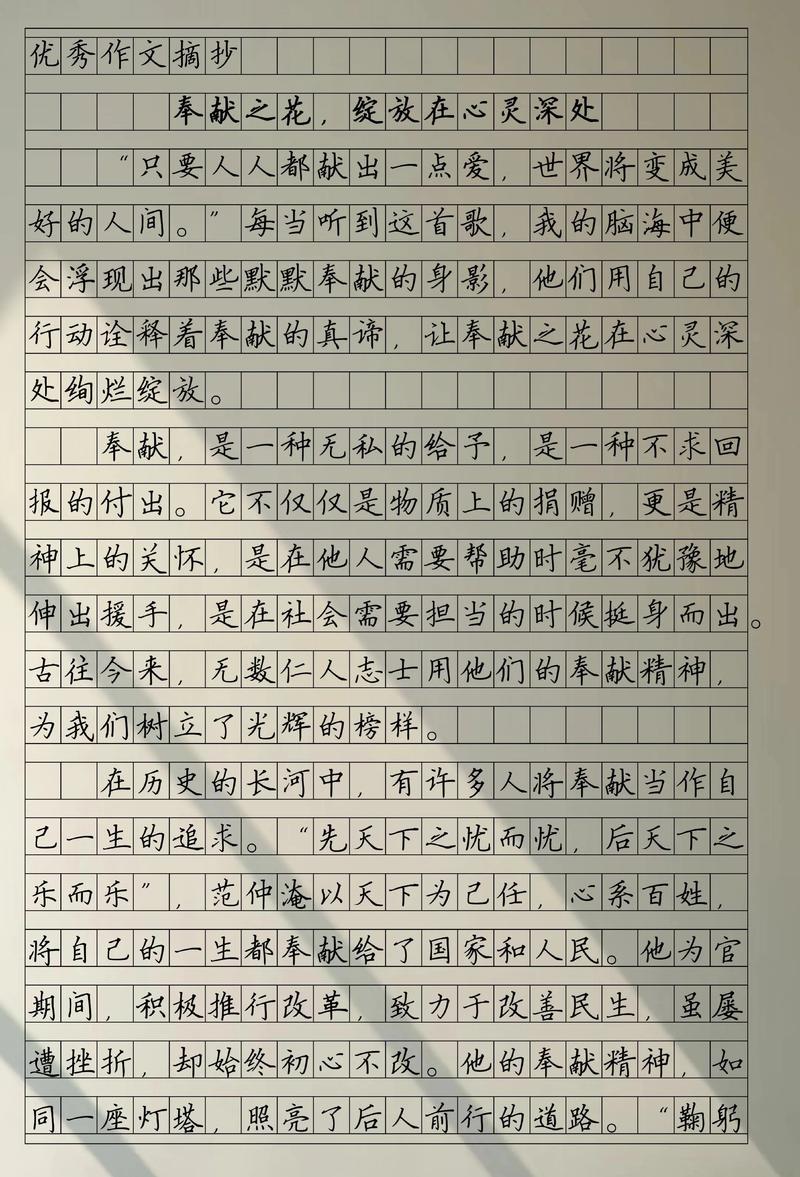 优秀作文摘抄
奉献之花，绽放在心灵深处
“只要人人都献出一点爱，世界将变成美
好的人间。”每当听到这首歌，我的脑海中便
会浮现出那些默默奉献的身影，他们用自己的
行动诠释着奉献的真谛，让奉献之花在心灵深
处绚烂绽放。
奉献，是一种无私的给予，是一种不求回
报的付出。它不仅仅是物质上的捐赠，更是精
神上的关怀，是在他人需要帮助时毫不犹豫地
伸出援手，是在社会需要担当的时候挺身而出。
古往今来，无数仁人志士用他们的奉献精神，
为我们树立了光辉的榜样。
在历史的长河中，有许多人将奉献当作自
己一生的追求。“先天下之忧而忧，后天下之
乐而乐”，范仲淹以天下为己任，心系百姓，
将自己的一生都奉献给了国家和人民。他为官
期间，积极推行改革，致力于改善民生，虽屡
遭挫折，却始终初心不改。他的奉献精神，如
同一座灯塔，照亮了后人前行的道路。“鞠躬